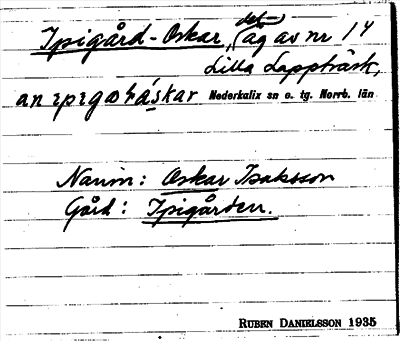 Ipigård-Oskar, (del) äg av nr 14
Lilla Lappträsk,
Nederkalix sn o. tg. Norrb. län
Namn: Oskar Isaksson
Gård: Ipigården.
RUBEN DANIELSSON 1935